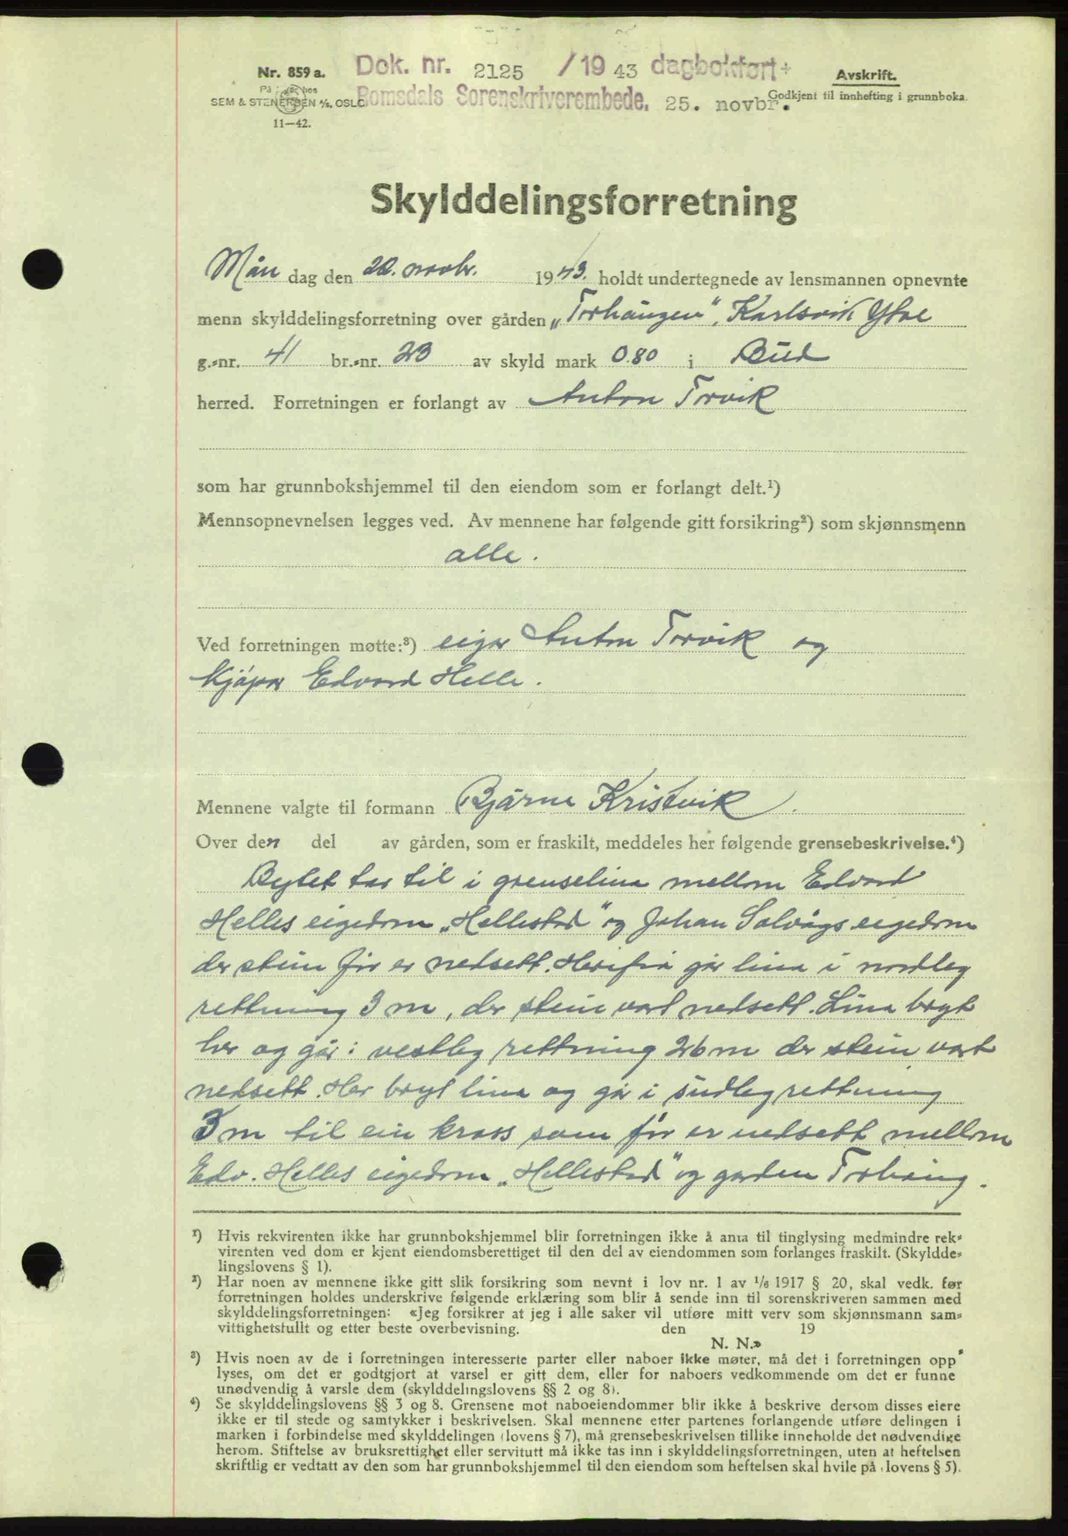 Nr. 859 a.
På lager hos
SEM & STENERSEN A/S, OSLO.
11—42.
Dok. nr. 2125 /19 43 dagbokført
Romsdals Sorenskriverembede, 25. novbr.
Avskrift.
Godkjent til innhefting i grunnboka.
Skylddelingsforretning
Mån dag den 22. novbr. 1943. holdt undertegnede av lensmannen opnevnte
menn skylddelingsforretning over gården „Torhaugen", Karlsvik Ytre
g.-nr. 41 br.-nr. 23 av skyld mark 0.80 i Bud
herred. Forretningen er forlangt av Anton Torvik
som har grunnbokshjemmel til den eiendom som er forlangt delt.¹)
Mennsopnevnelsen legges ved. Av mennene har følgende gitt forsikring²) som skjønnsmenn
alle.
Ved forretningen møtte:³) eigar Anton Torvik og
kjøpar Edvard Helle.
Mennene valgte til formann Bjarne Kristvik.
Over den del av gården, som er fraskilt, meddeles her følgende grensebeskrivelse.⁴)
Bytet tar til i grenselina mellom Edvard
Helles eigedom „Hellestad" og Johan Solvågs eigedom
der stein før er nedsett. Herifrå går lina i nordleg
rettning 3 m, der stein vart nedsett. Lina bryt
her og går i vestleg rettning 26 m der stein vart
nedsett. Her bryt lina og går i sudleg rettning
3 m til ein kross som før er nedsett mellom
Edv. Helles eigedom „Hellestad" og garden Torhaug.
¹) Hvis rekvirenten ikke har grunnbokshjemmel blir forretningen ikke å anta til tinglysing medmindre rek-
virenten ved dom er kjent eiendomsberettiget til den del av eiendommen som forlanges fraskilt. (Skyldde-
lingslovens § 1).
²) Har noen av mennene ikke gitt slik forsikring som nevnt i lov nr. 1 av 1/6 1917 § 20, skal vedk. før
forretningen holdes underskrive følgende erklæring som blir å sende inn til sorenskriveren sammen med
skylddelingsforretningen: «Jeg forsikrer at jeg i alle saker vil utføre mitt verv som skjønnsmann sam-
vittighetsfullt og etter beste overbevisning. den 19
N. N.»
³) Hvis noen av de i forretningen interesserte parter eller naboer ikke møter, må det i forretningen opp-
lyses, om det er godtgjort at varsel er gitt dem, eller for naboers vedkommende om det er funne
unødvendig å varsle dem (skylddelingslovens §§ 2 og 8).
⁴) Se skylddelingslovens §§ 3 og 8. Grensene mot naboeiendommer blir ikke å beskrive dersom disses eiere
ikke er til stede og samtykker i beskrivelsen. Skal mennene etter partenes forlangende utføre delingen i
marken i forbindelse med skylddelingen (lovens § 7), må grensebeskrivelsen tillike inneholde det nødvendige
herom. Stiftelse av bruksrettighet eller servitutt må ikke tas inn i skylddelingsforretningen, uten at heftelsen
skriftlig er vedtatt av den som har grunnbokshjemmel til den eiendom som heftelsen skal hvile på (lovens § 5).